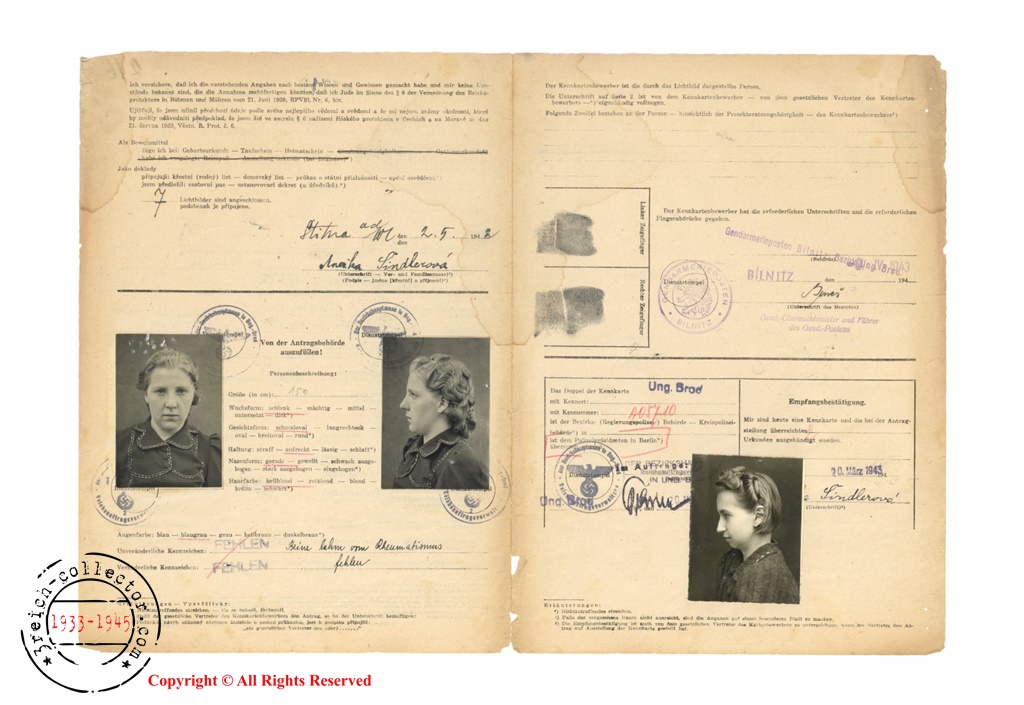 Ich versichere, daß ich die vorstehenden Angaben nach bestem Wissen und Gewissen gemacht habe und mir keine Um-
stände bekannt sind, die die Annahme rechtfertigen könnten, daß ich Jude im Sinne des § 6 der Verordnung des Reichs-
protektors in Böhmen und Mähren vom 21. Juni 1939, RPVBl. Nr. 6, bin.
Ujišťuji, že jsem učinil předchozí údaje podle svého nejlepšího vědomí a svědomí a že mi nejsou známy okolnosti, které
by mohly odůvodniti předpoklad, že jsem žid ve smyslu § 6 nařízení říšského protektora v Čechách a na Moravě ze dne
21. června 1939, Věstn. Ř. Prot. č. 6.
Als Beweismittel
füge ich bei: Geburtsurkunde — Taufschein — Heimatschein —
Jako doklady
připojuji: křestní (rodný) list — domovský list — průkaz o státní příslušnosti —
jsem předložil: cestovní pas — ustanovovací dekret (u úředníků).*)
7 Lichtbilder sind angeschlossen.
podobenek je připojeno.
den 2. 5. 1942
dne
Šindlerová
(Unterschrift — Vor- und Familienname)
Von der Antragsbehörde
auszufüllen!
Personenbeschreibung:
Größe (in cm): 150
Wuchsform: schlank — mächtig — mittel —
untersetzt — dick*)
Gesichtsform: schmaloval — langrechteck —
oval — breitoval — rund*)
Haltung: straff — aufrecht — lässig — schlaff*)
Nasenform: gerade — gewellt — schwach ausge-
bogen — stark ausgebogen — eingebogen*)
Haarfarbe: hellblond — rotblond — blond
bräun — schwarz*)
Augenfarbe: blau — blaugrau — grau — hellbraun — dunkelbraun*)
Unveränderliche Kennzeichen: FEHLEN Beine lahm vom Rheumatismus
Veränderliche Kennzeichen: FEHLEN fehlen
Der Kennkartenbewerber ist die durch das Lichtbild dargestellte Person.
Die Unterschrift auf Seite 2 ist von dem Kennkartenbewerber — von dem gesetzlichen Vertreter des Kennkarten-
bewerbers —*) eigenhändig vollzogen.
Folgende Zweifel bestehen an der Person — hinsichtlich der Protektoratsangehörigkeit — des Kennkartenbewerbers*)
Linker Zeigefinger
Rechter Zeigefinger
Der Kennkartenbewerber hat die erforderlichen Unterschriften und die erforderlichen
Fingerabdrücke gegeben.
Gendarmerieposten Bilnitz Bezirk Ung. Brod
BILNITZ den 194
Dienststempel
GENDARMERIEPOSTEN BILNITZ
(Unterschrift des Beamten)
Gend.-Oberwachtmeister und Führer
des Gend.-Postens
Das Doppel der Kennkarte Ung. Brod
mit Kennort:
mit Kennummer: A05710
ist der Bezirks- (Regierungspolizei-) Behörde — Kreispolizei-
behörde*) in
ist dem Polizeipräsidenten in Berlin*)
Im Auftrage:
Ung. Brod
Empfangsbestätigung.
Mir sind heute eine Kennkarte und die bei der Antrag-
stellung überreichten
Urkunden ausgehändigt worden.
20. März 1943
Šindlerová
(Unterschrift)
Erläuterungen:
¹) Nichtzutreffendes streichen.
²) Falls der vorgesehene Raum nicht ausreicht, sind die Angaben auf einem besonderen Blatt zu machen.
3reich-collector.com
1933-1945
Copyright © All Rights Reserved